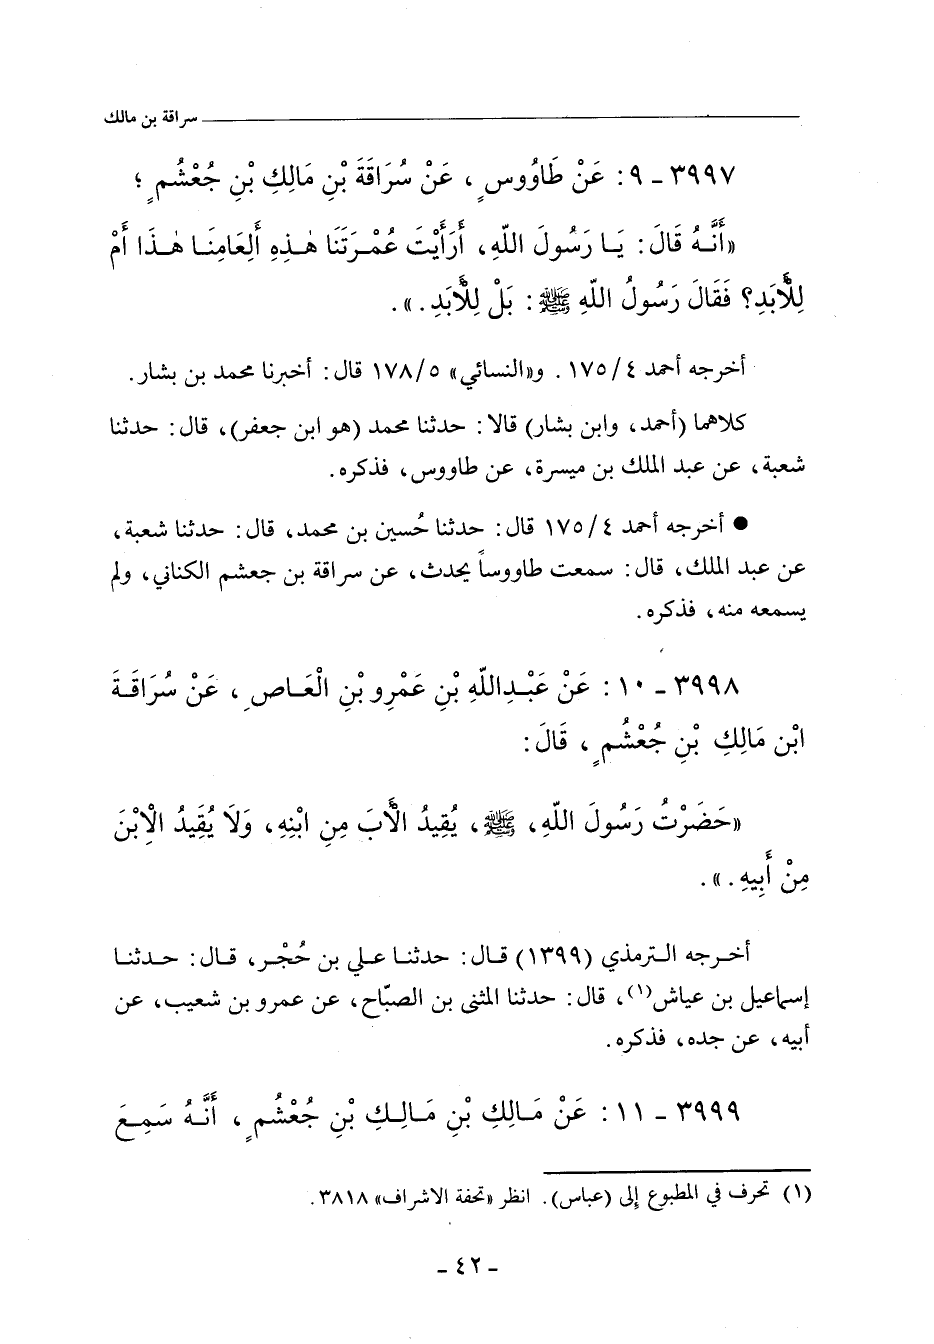 سراقة بن مالك
٣٩٩٧ - ٩ : عَنْ طَاوُوسٍ ، عَنْ سُرَاقَةَ بْنِ مَالِكِ بْنِ جُعْشُمٍ ؛
«أَنَّهُ قَالَ : يَا رَسُولَ اللّهِ، أَرَأَيْتَ عُمْرَتَنَا هٰذِهِ أَلِعَامِنَا هٰذَا أَمْ
لِلْأَبَدِ؟ فَقَالَ رَسُولُ اللّهِ ﷺ : بَلْ لِلْأَبَدِ . » .
أخرجه أحمد ٤/١٧٥ . و«النسائي» ٥/١٧٨ قال : أخبرنا محمد بن بشار .
كلاهما (أحمد، وابن بشار) قالا : حدثنا محمد (هو ابن جعفر)، قال : حدثنا
شعبة، عن عبد الملك بن ميسرة، عن طاووس، فذكره .
● أخرجه أحمد ٤/١٧٥ قال : حدثنا حُسين بن محمد، قال : حدثنا شعبة،
عن عبد الملك، قال : سمعت طاووساً يحدث، عن سراقة بن جعشم الكناني، ولم
يسمعه منه، فذكره .
٣٩٩٨ - ١٠ : عَنْ عَبْدِاللّهِ بْنِ عَمْرِو بْنِ الْعَاصِ ، عَنْ سُرَاقَةَ
ابْنِ مَالِكِ بْنِ جُعْشُمٍ ، قَالَ :
«حَضَرْتُ رَسُولَ اللّهِ، ﷺ، يُقِيدُ الْأَبَ مِنِ ابْنِهِ، وَلَا يُقِيدُ الْاِبْنَ
مِنْ أَبِيهِ . » .
أخرجه الترمذي (١٣٩٩) قال : حدثنا علي بن حُجْر، قال : حدثنا
إسماعيل بن عياش(١)، قال : حدثنا المثنى بن الصبّاح، عن عمرو بن شعيب، عن
أبيه، عن جده، فذكره .
٣٩٩٩ - ١١ : عَنْ مَالِكِ بْنِ مَالِكِ بْنِ جُعْشُمٍ ، أَنَّهُ سَمِعَ
(١) تحرف في المطبوع إلى (عباس). انظر «تحفة الاشراف» ٣٨١٨ .
- ٤٢ -